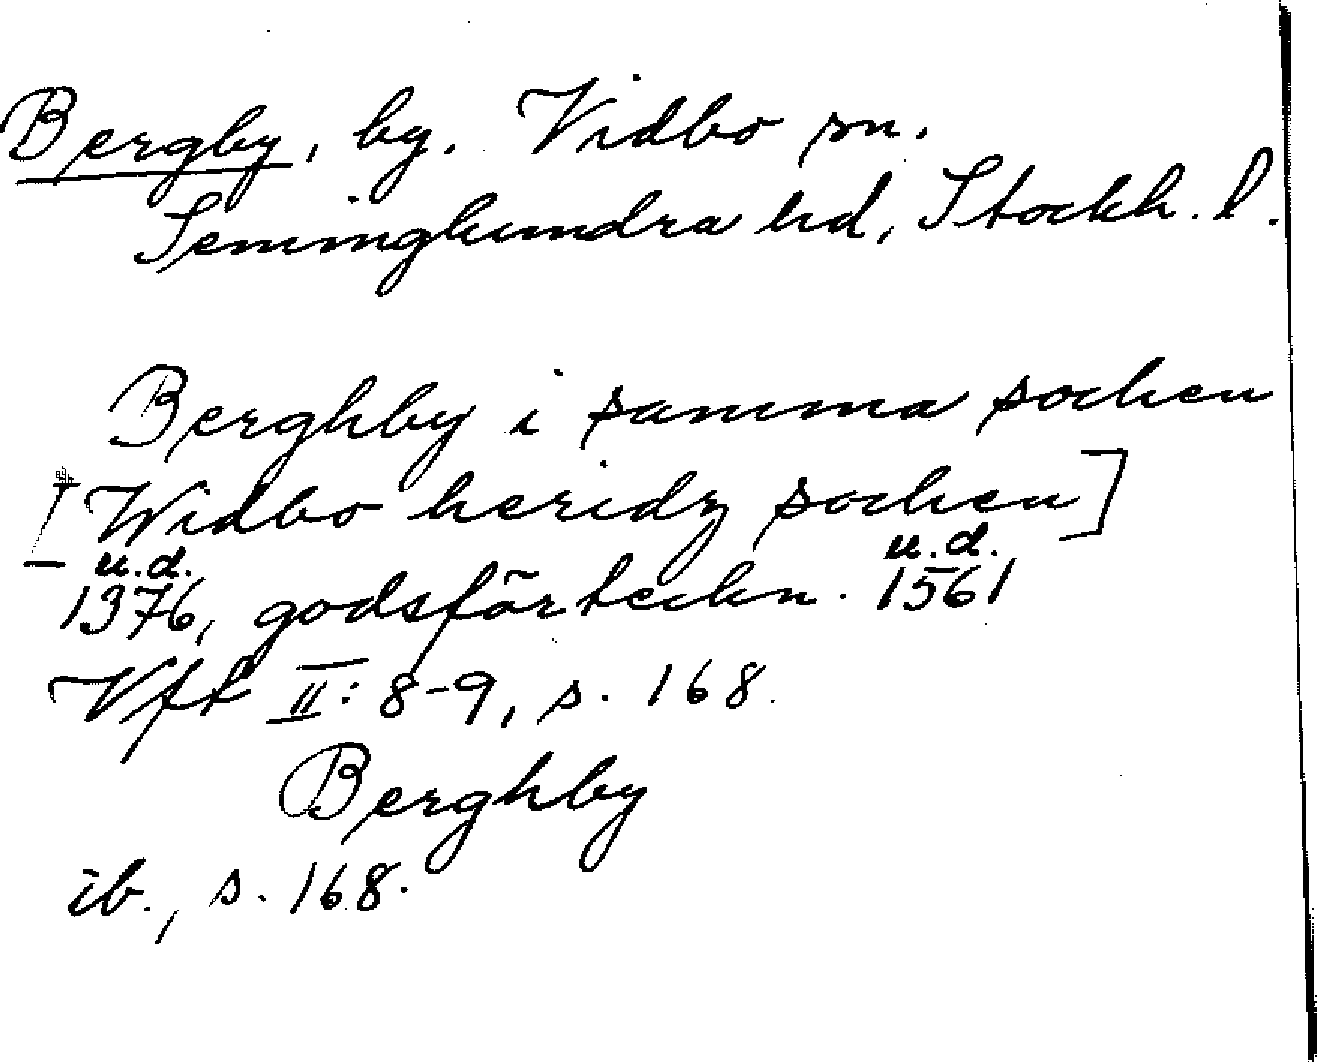 Bergby, by. Vidbo sn.
Seminghundra hd, Stockh. l.
Berghby i samma sochen
[Widbo heridz sochen]
u.d. u.d.
1376, godsförteckn. 1561
Vft II: 8-9, s. 168.
Berghby
ib., s. 168.